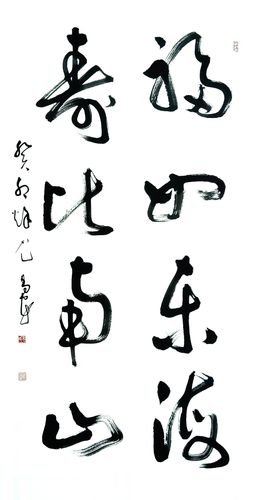 福如东海
寿比南山
癸卯